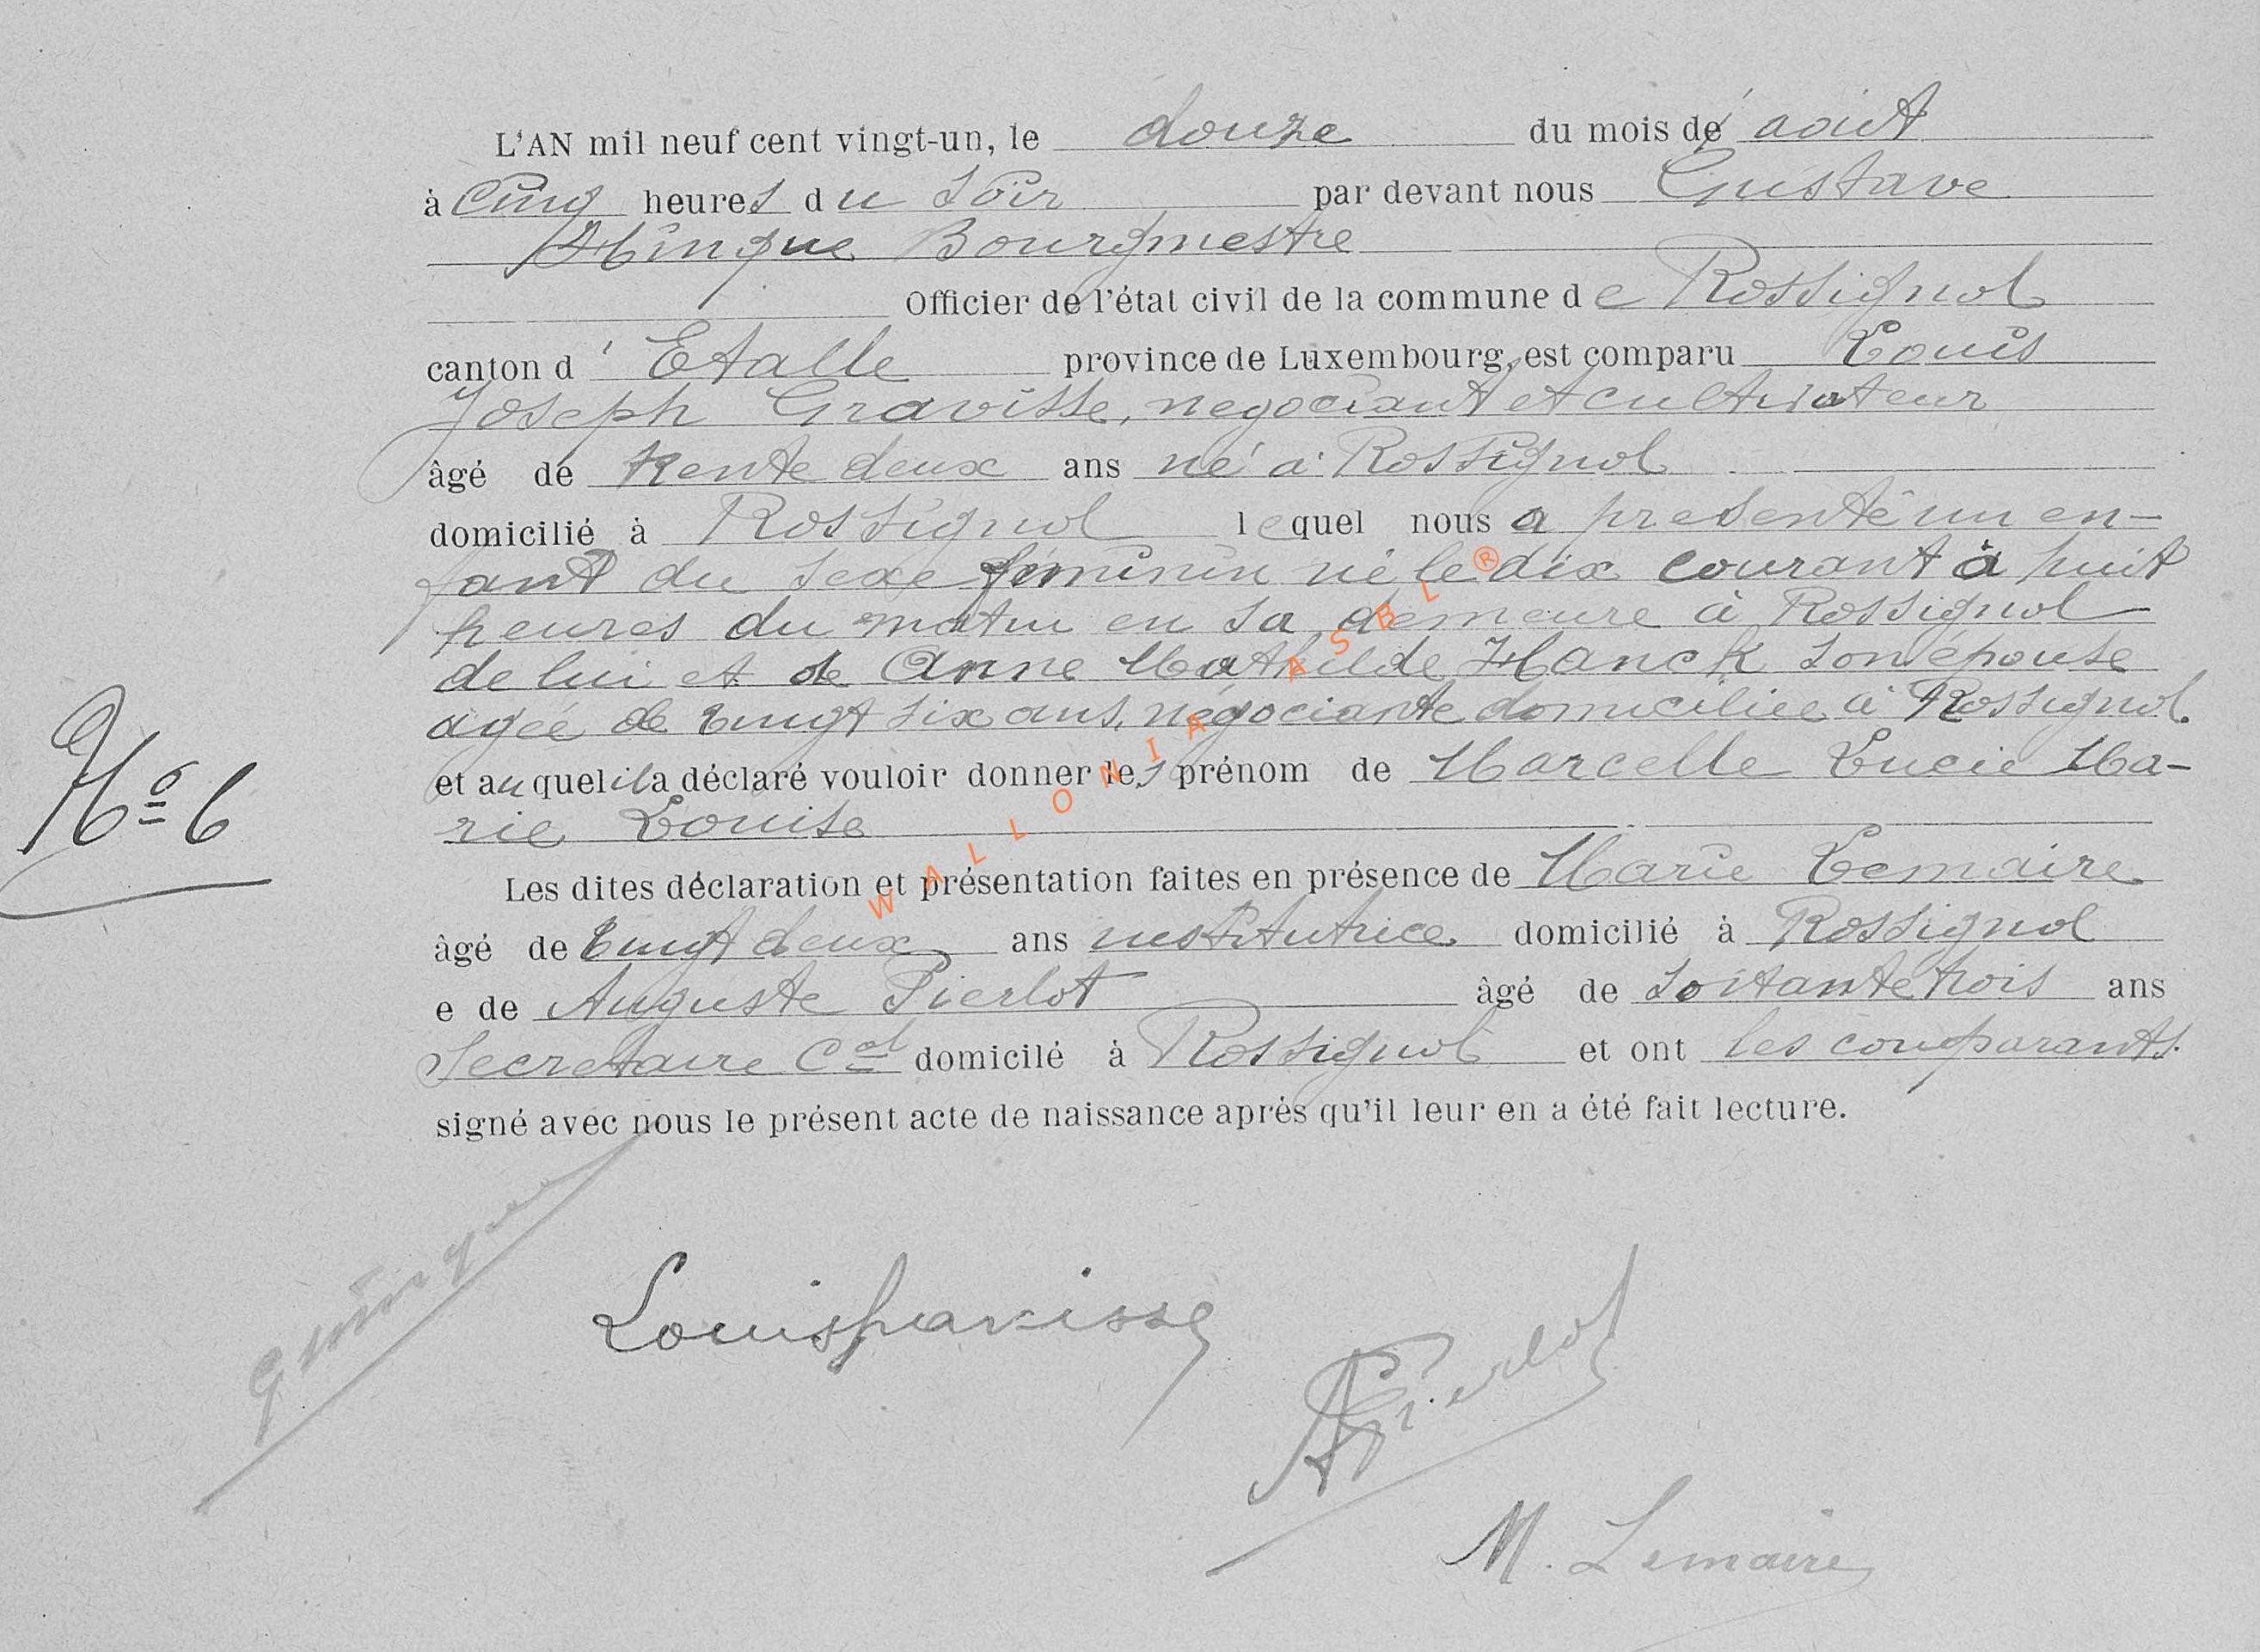 L'AN mil neuf cent vingt-un, le douze du mois de août
à Cinq heures du soir par devant nous Gustave
Hinque Bourgmestre
Officier de l'état civil de la commune de Rossignol
canton d'Etalle province de Luxembourg, est comparu Louis
Joseph Gravisse, negociant et cultivateur
âgé de trente deux ans né à Rossignol
domicilié à Rossignol lequel nous a presenté un en-
fant du sexe féminin né le dix courant à huit
heures du matin en sa demeure à Rossignol
de lui et de Anne Mathilde Hanck son épouse
agée de vingt six ans, négociante domiciliée à Rossignol.
et auquel il a déclaré vouloir donner les prénom de Marcelle Lucie Ma-
rie Louise
Nº 6
Les dites déclaration et présentation faites en présence de Marie Lemaire
âgé de vingt deux ans institutrice domicilié à Rossignol
e de Auguste Pierlot âgé de soixante trois ans
Secretaire Cal domicilé à Rossignol et ont les comparants
signé avec nous le présent acte de naissance après qu'il leur en a été fait lecture.
Louis Gravisse
A Pierlot
M. Lemaire
WALLONIA ASBL ®